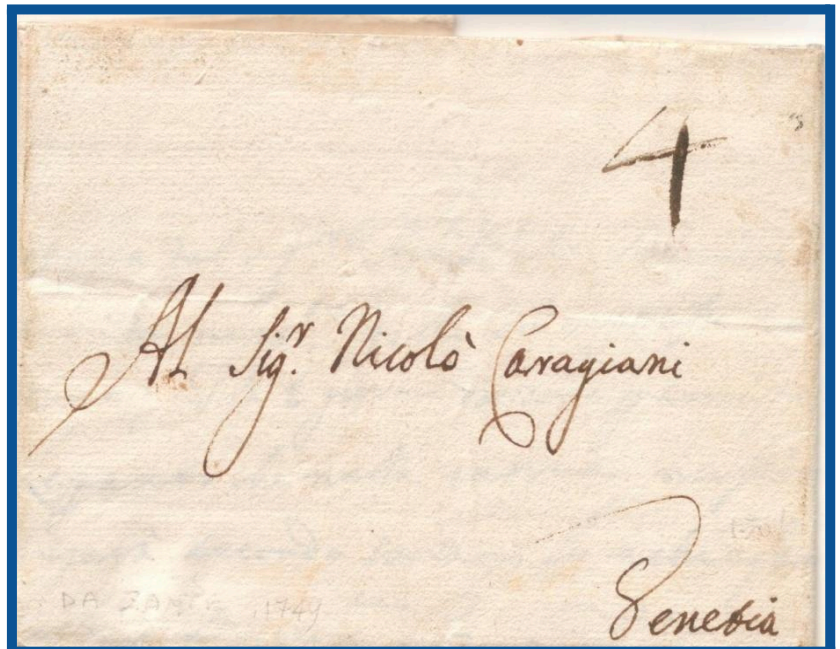 4
Al Sig.r Nicolò Caragiani
Venetia
DA ZANTE 1749